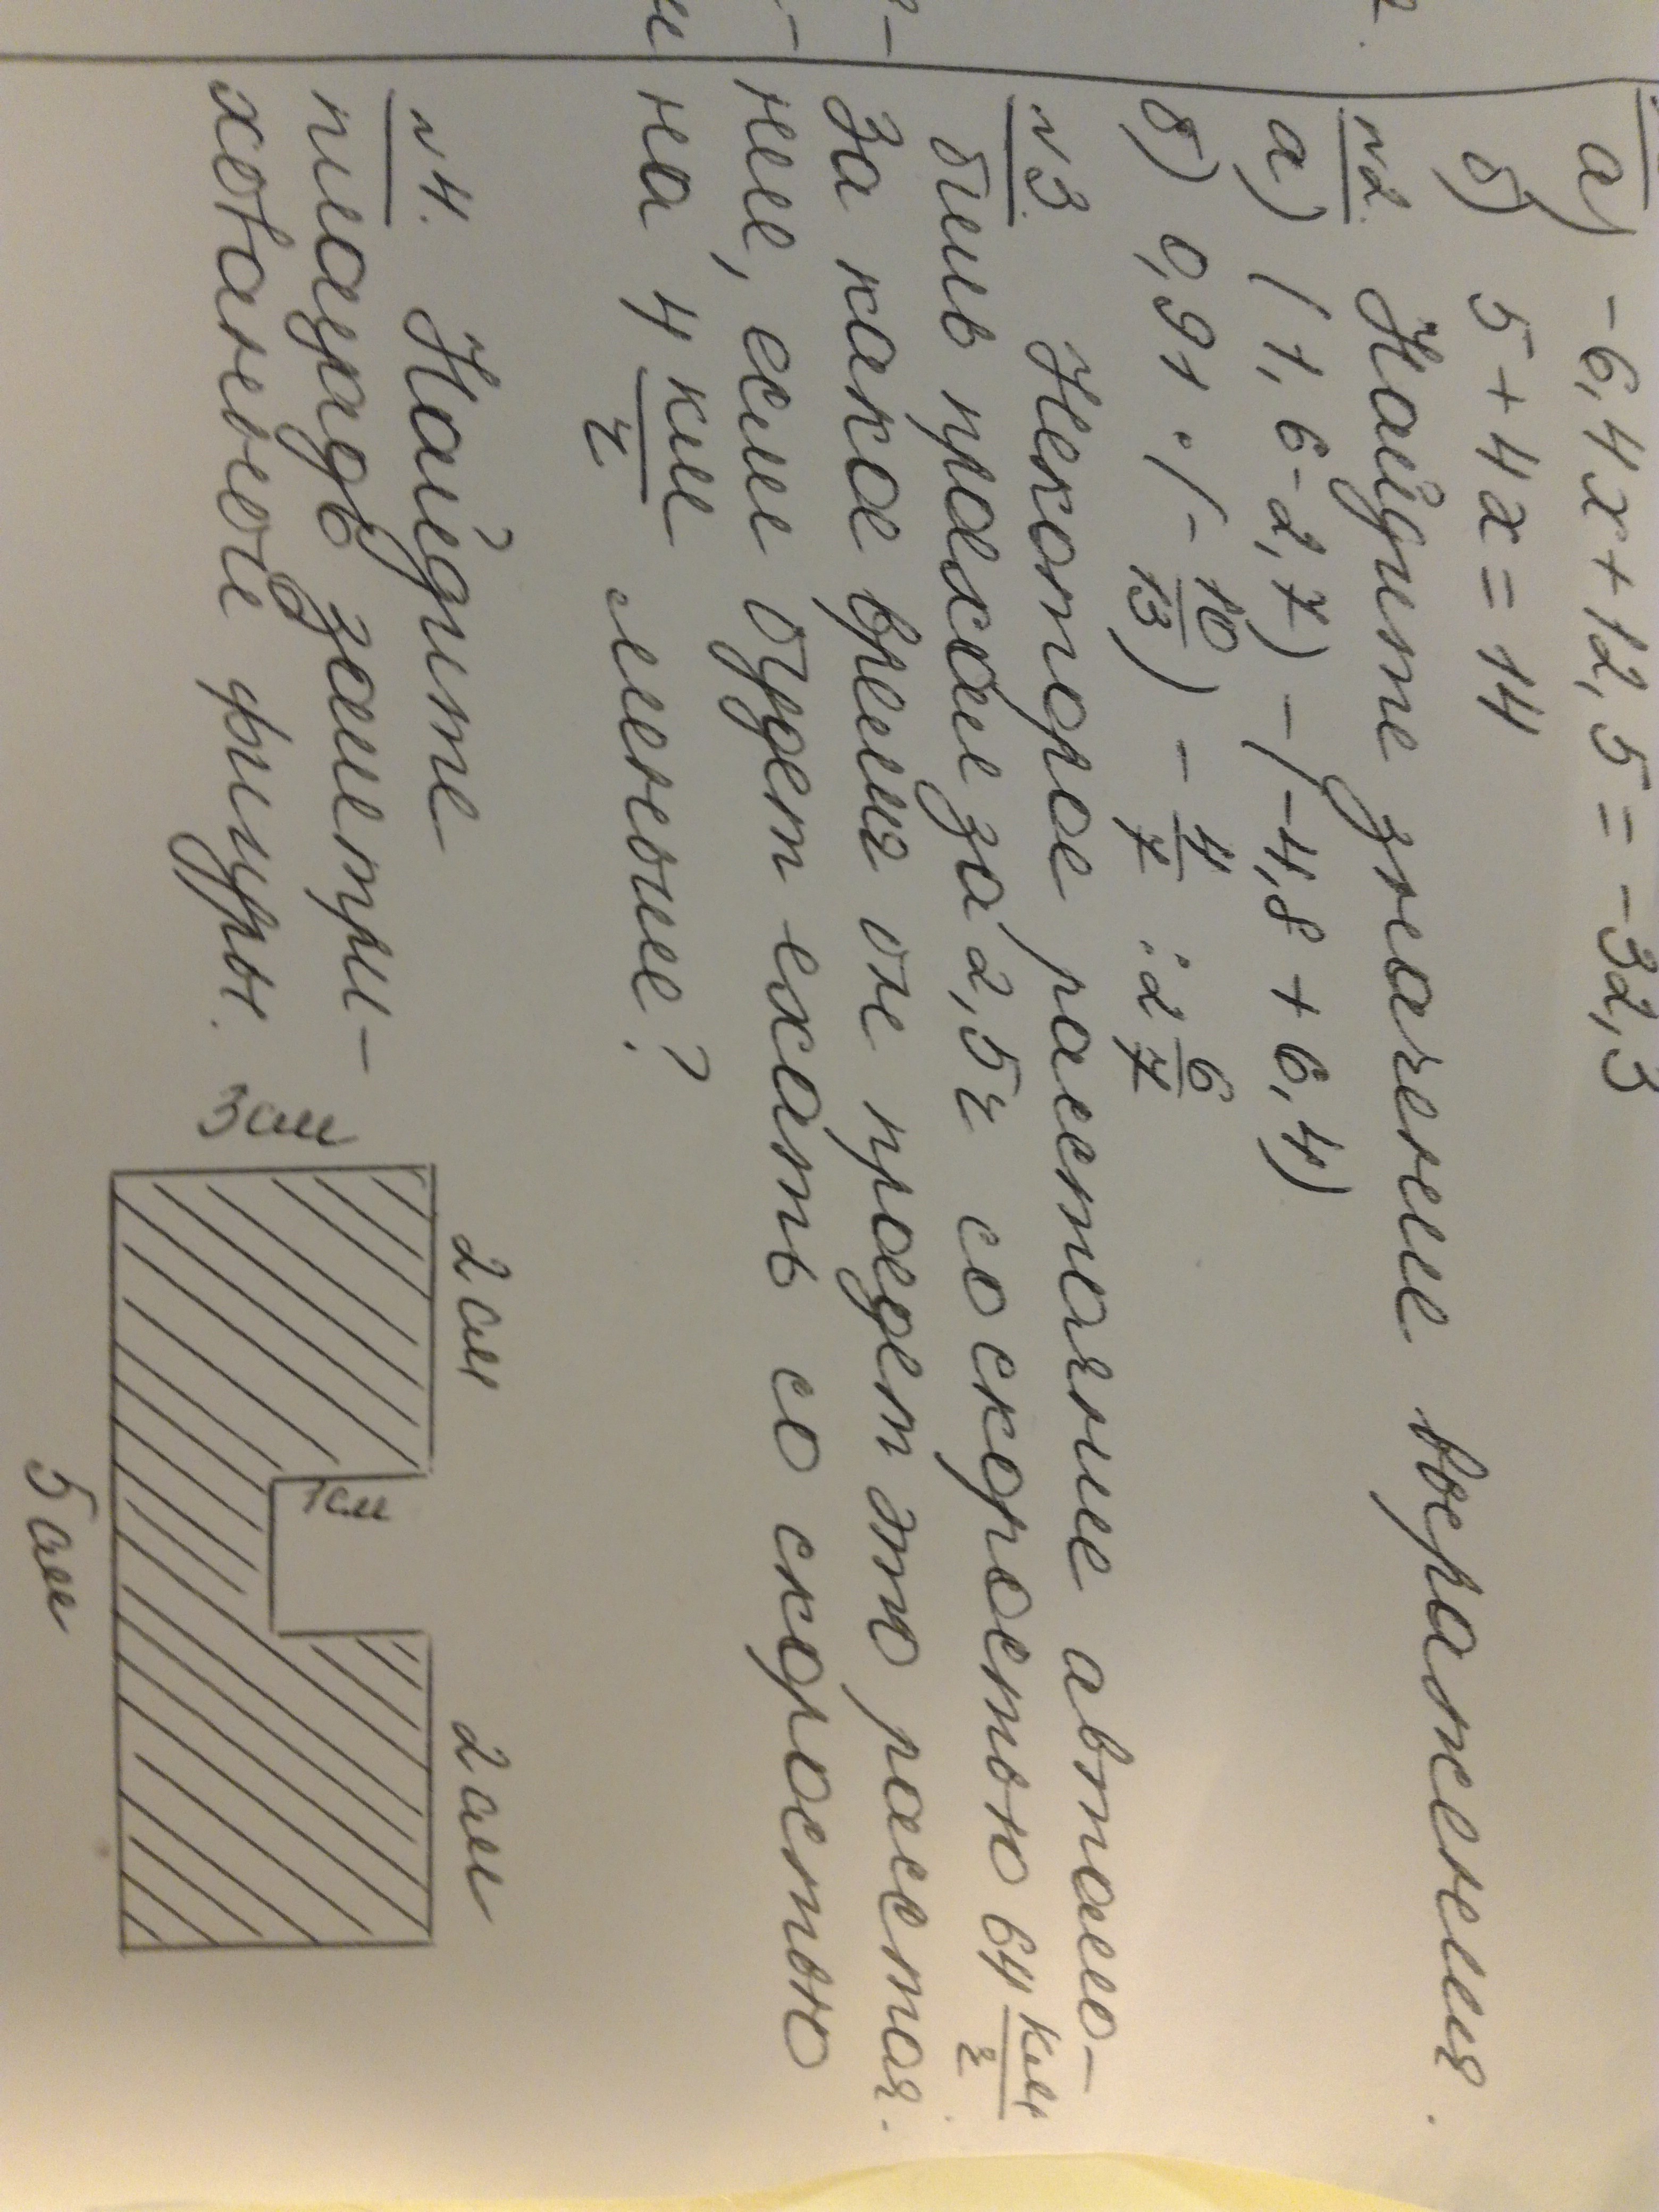 а) -6,4х+12,5=-32,3
б) 5+4х=14
№2. Найдите значение выражения.
а) (1,6-2,7)-(-4,8+6,4)
б) 0,91:(-10/13)-4/7:2 6/7
№3. Некоторое расстояние автомо-
биль проехал за 2,5ч со скоростью 64 км/ч.
За какое время он проедет это расстоя-
ние, если будет ехать со скоростью
на 4 км/ч меньше?
№4. Найдите
площадь заштри-
хованной фигуры.
2см 2см
3см
1см
5см